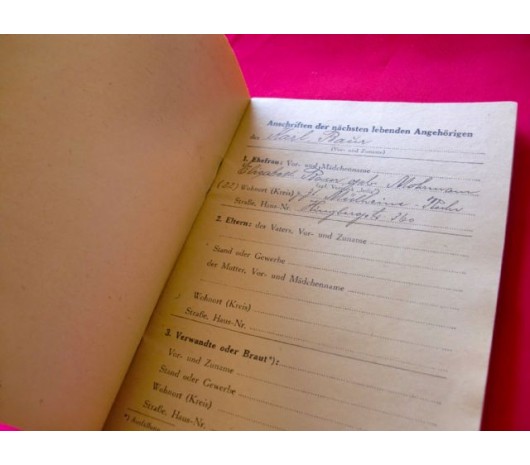 Anschriften der nächsten lebenden Angehörigen
des Karl Baur
(Vor- und Zuname)
1. Ehefrau: Vor- und Mädchenname
Elisabeth Baur geb.
Wohnort (Kreis) z. Zt. Mülheim - Ruhr
Straße, Haus-Nr.
2. Eltern: des Vaters, Vor- und Zuname
Stand oder Gewerbe
der Mutter, Vor- und Mädchenname
Wohnort (Kreis)
Straße, Haus-Nr.
3. Verwandte oder Braut*):
Vor- und Zuname
Stand oder Gewerbe
Wohnort (Kreis)
Straße, Haus-Nr.